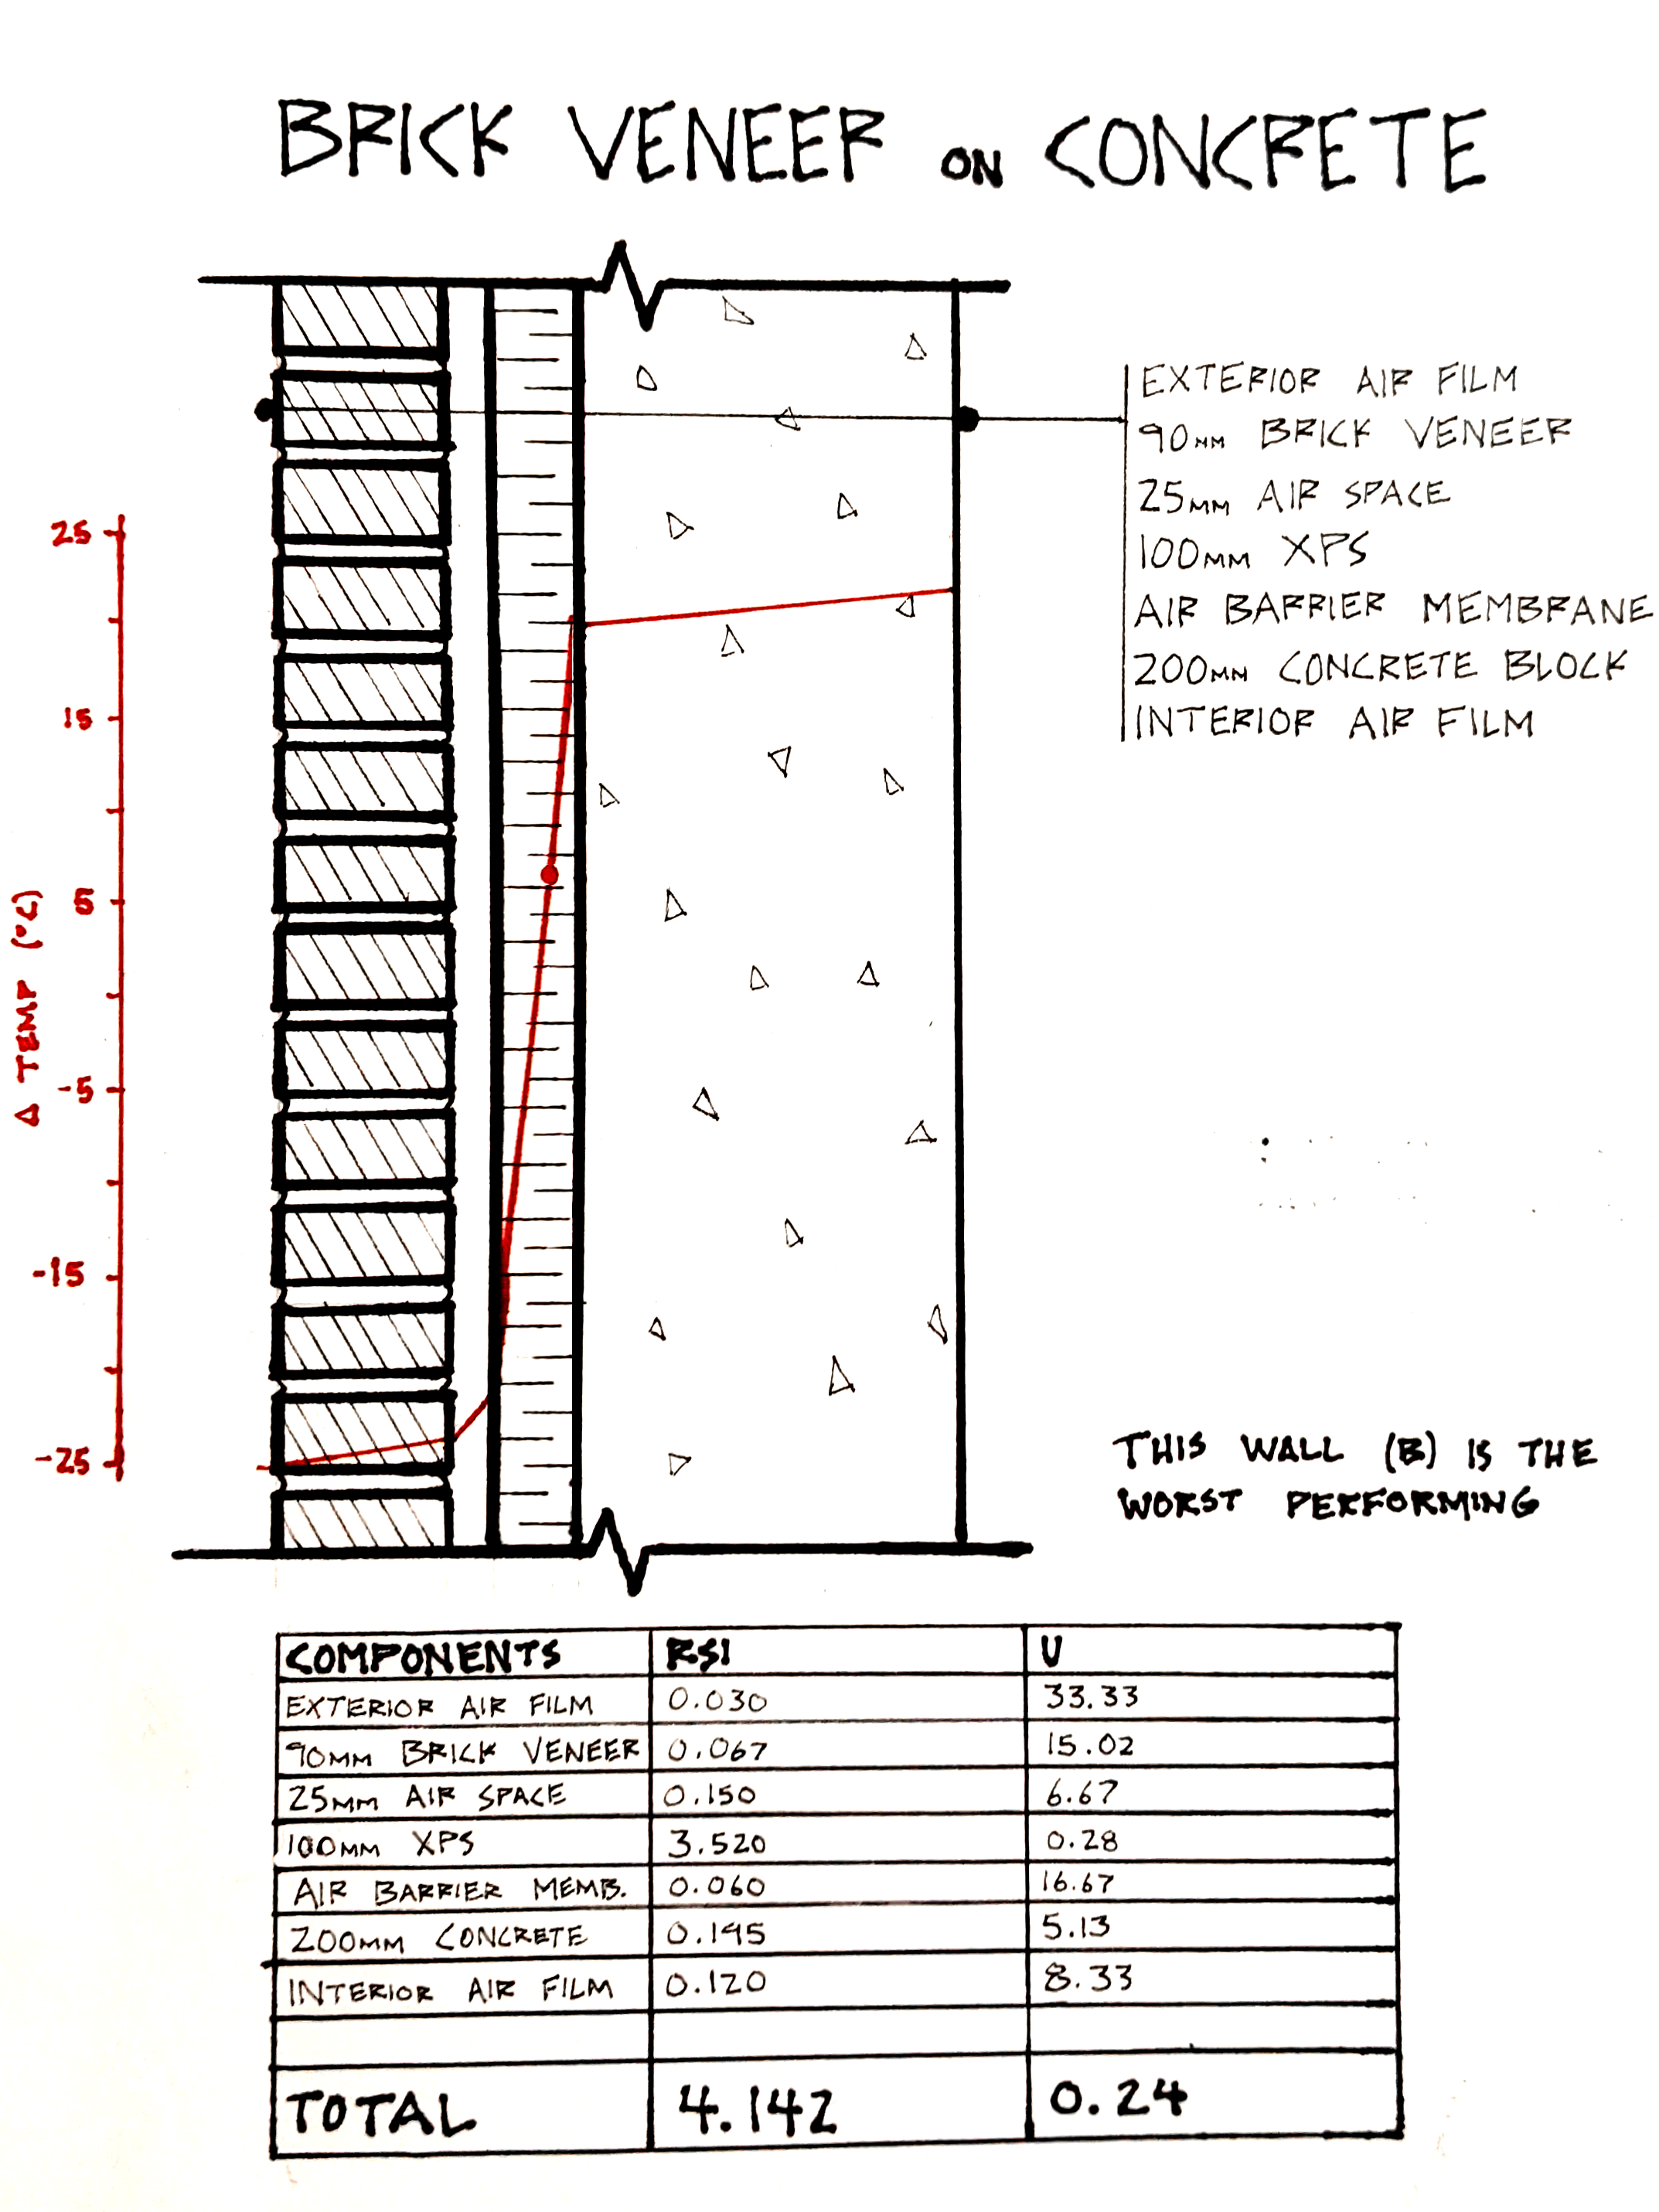 BRICK VENEER ON CONCRETE
EXTERIOR AIR FILM
90MM BRICK VENEER
25MM AIR SPACE
100MM XPS
AIR BARRIER MEMBRANE
200MM CONCRETE BLOCK
INTERIOR AIR FILM
25
15
5
-5
-15
-25
Δ TEMP (°C)
THIS WALL (B) IS THE
WORST PERFORMING
COMPONENTS RSI U
EXTERIOR AIR FILM 0.030 33.33
90MM BRICK VENEER 0.067 15.02
25MM AIR SPACE 0.150 6.67
100MM XPS 3.520 0.28
AIR BARRIER MEMB. 0.060 16.67
200MM CONCRETE 0.195 5.13
INTERIOR AIR FILM 0.120 8.33
TOTAL 4.142 0.24